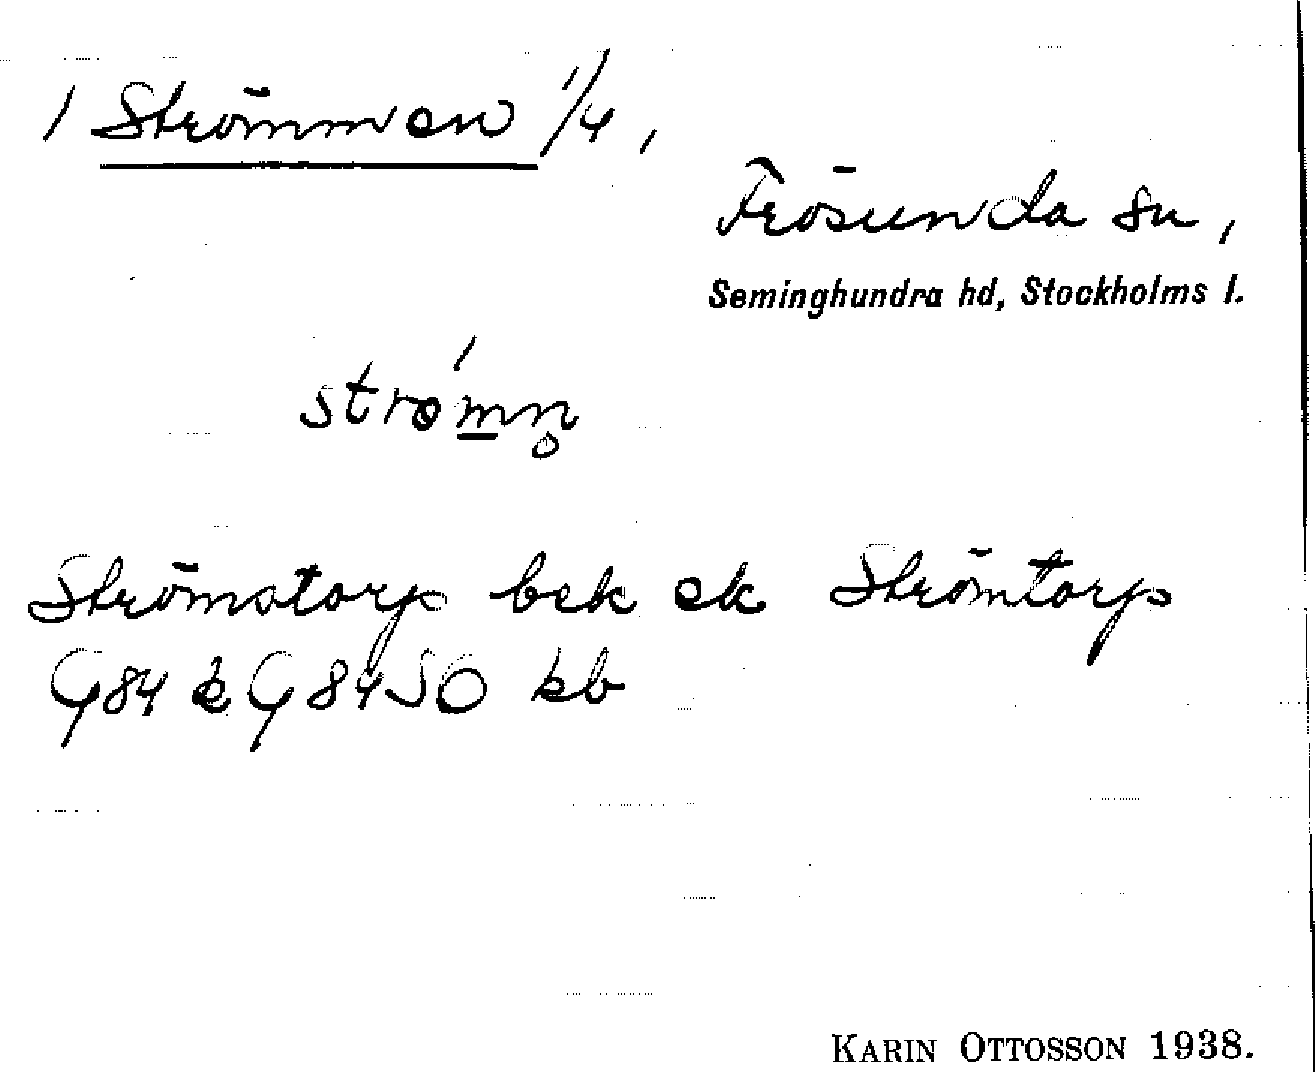 1 Strömmen 1/4,
Frösunda sn,
Seminghundra hd, Stockholms l.
strø´mn̥
Strömstorp bek ek Strömtorp
G84 k G84SO kb
KARIN OTTOSSON 1938.